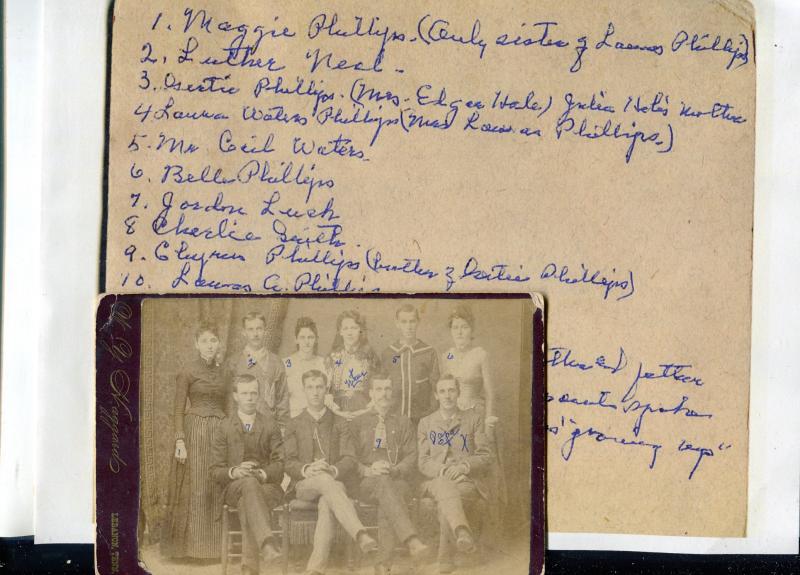 1. Maggie Phillips. (Only sister of Lawras Phillips)
2. Luther Neal.
3. Gertie Phillips. (Mrs. Edgar Hale) Julia Hale's mother
4 Laura Waters Phillips (Mrs Phillips.)
5. Mr Cecil Waters.
6. Belle Phillips
7. Jordon Lush
8 Charlie Smith.
9. Phillips (brother of Gertie Phillips)
10. A. Phillips
father
"growing ups"
1 2 3 4 5 6
7 9 X
LEBANON, TENN.